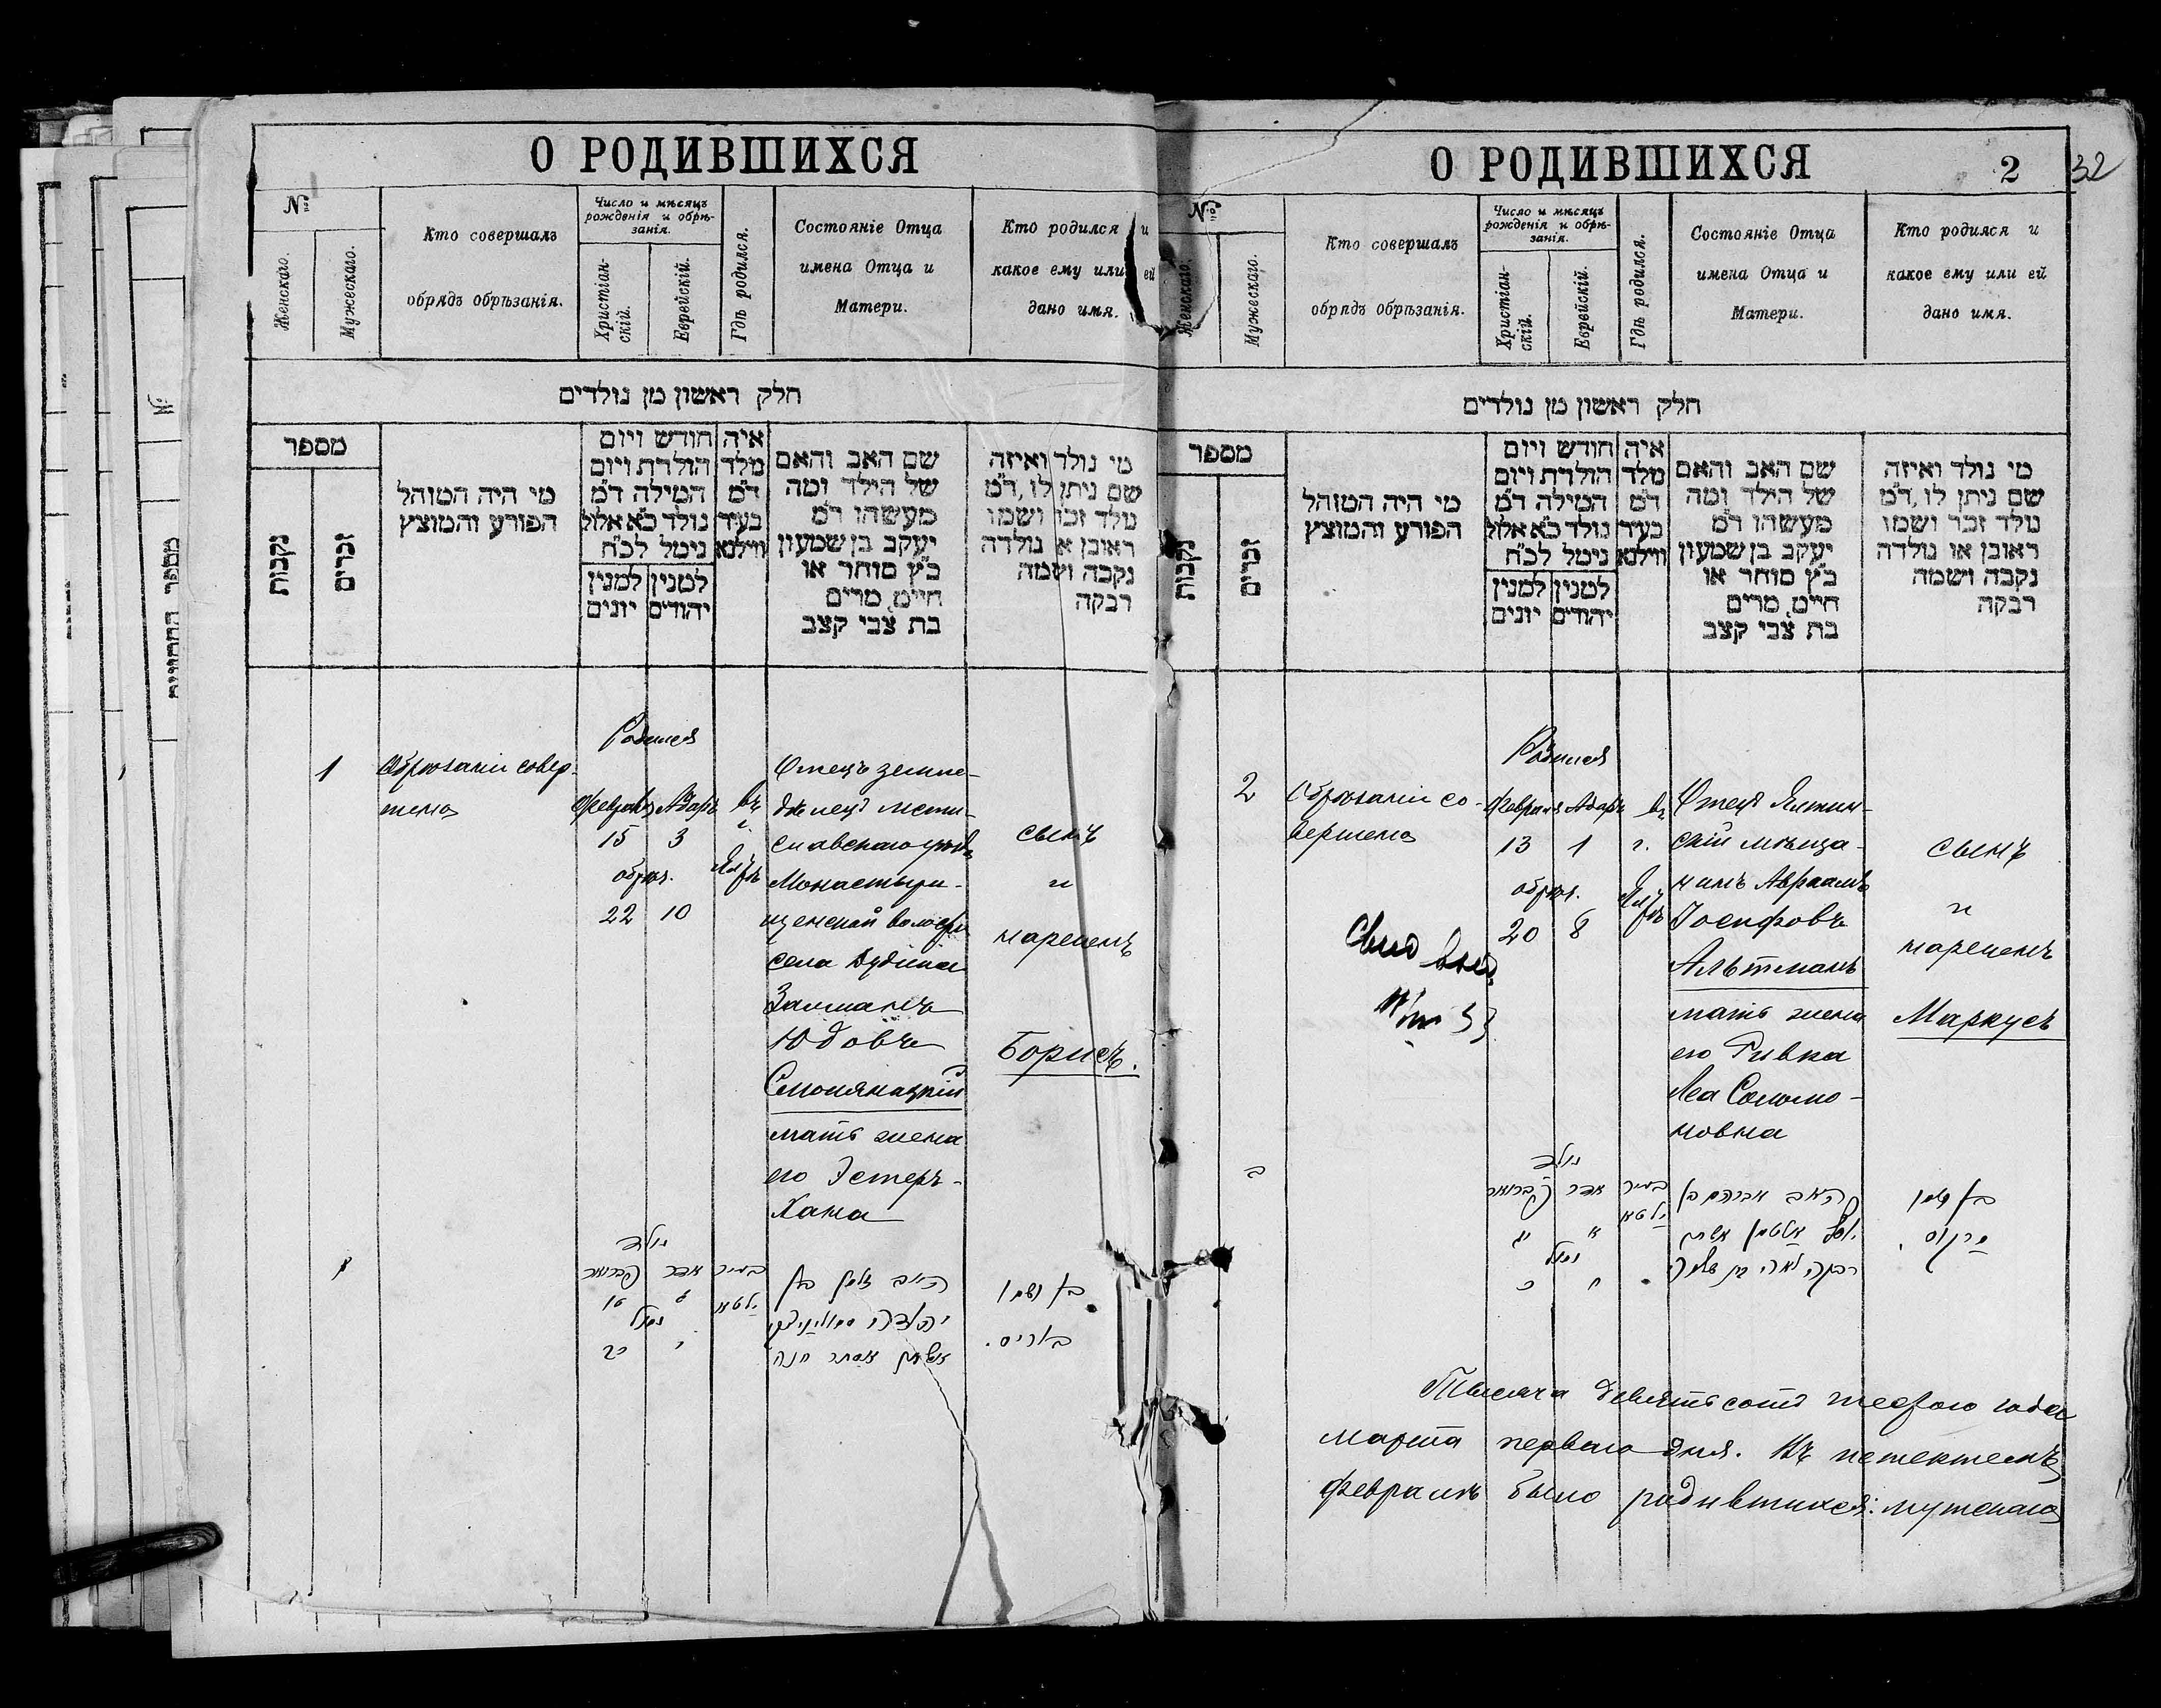 О РОДИВШИХСЯ
№
Женскаго.
Мужескаго.
Кто совершалъ
обрядъ обрѣзанія.
Число и мѣсяцъ
рожденія и обрѣ-
занія.
Христіан-
скій.
Еврейскій.
Гдѣ родился.
Состояніе Отца
имена Отца и
Матери.
Кто родился и
какое ему или ей
дано имя.
חלק ראשון מן נולדים
מספר
נקבות
זכרים
מי היה המוהל
הפורע והמוצץ
חודש ויום
הולדת ויום
המילה ד״מ
נולד כ״א אלול
נימל לכ״ח
למנין
יהודים
למנין
יונים
איה
מלד
ד״מ
בעיר
ווילנא
שם האב והאם
של הילד ומה
מעשהו ד״מ
יעקב בן שמעון
כ״ץ סוחר או
חייט, מרים
בת צבי קצב
מי נולד ואיזה
שם ניתן לו, ד״מ
נולד זכר ושמו
ראובן או נולדה
נקבה ושמה
רבקה
1
Обрѣзаніе совер-
шено
Родился
Февраль Адаръ
15 3
обрѣз.
22 10
въ
г.
Отецъ земле-
дѣлецъ Мсти-
славскаго уѣзда
Монастыр-
щенской волости
села Дудина
Залманъ
Юдовъ
мать жена
его Эстеръ-
Хана
сынъ
и
нареченъ
Борисъ.
נולד
פברואר אדר בעיר
נמול
האב זלמן בן
אסתר חנה
בן ושמו
באריס.
О РОДИВШИХСЯ
2
32
№
Женскаго.
Мужескаго.
Кто совершалъ
обрядъ обрѣзанія.
Число и мѣсяцъ
рожденія и обрѣ-
занія.
Христіан-
скій.
Еврейскій.
Гдѣ родился.
Состояніе Отца
имена Отца и
Матери.
Кто родился и
какое ему или ей
дано имя.
חלק ראשון מן נולדים
מספר
נקבות
זכרים
מי היה המוהל
הפורע והמוצץ
חודש ויום
הולדת ויום
המילה ד״מ
נולד כ״א אלול
נימל לכ״ח
למנין
יהודים
למנין
יונים
איה
מלד
ד״מ
בעיר
ווילנא
שם האב והאם
של הילד ומה
מעשהו ד״מ
יעקב בן שמעון
כ״ץ סוחר או
חייט, מרים
בת צבי קצב
מי נולד ואיזה
שם ניתן לו, ד״מ
נולד זכר ושמו
ראובן או נולדה
נקבה ושמה
רבקה
2
Обрѣзаніе со-
вершено
Родился
Февраля Адаръ
13 1
обрѣз.
20 8
въ
г.
Отецъ Ялтин-
скій мѣща-
нинъ Авраамъ
Іосифовъ
Альтманъ
мать жена
его Ривка
Леа Соломо-
новна
сынъ
и
нареченъ
Маркусъ
ב
נולד
פברואר אדר בעיר
יאלטא
נמול
האב אברהם בן
יוסף אלטמן
רבקה לאה בת שלמה
בן ושמו
מרקוס.
Тысяча девятьсотъ года
марта перваго дня. Въ истекшемъ
февралѣ было родившихся: мужскаго